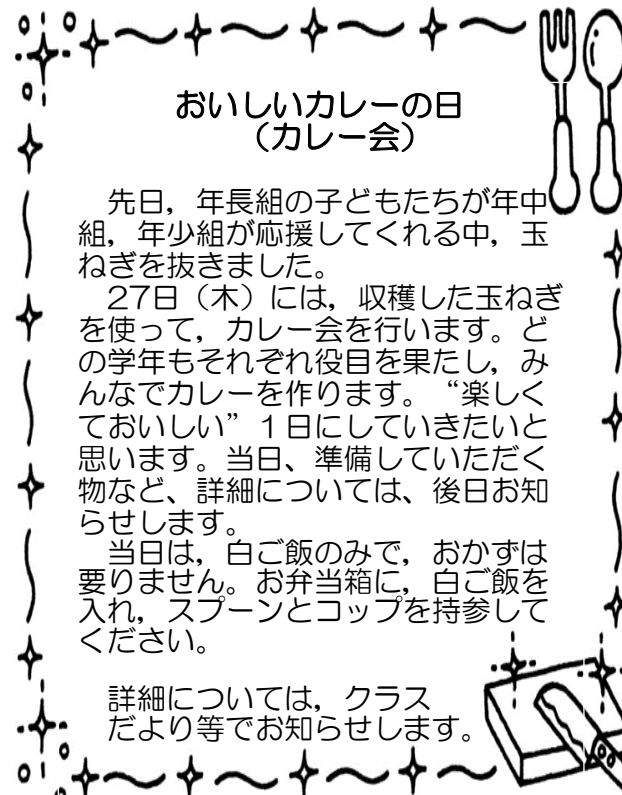 おいしいカレーの日
（カレー会）
先日，年長組の子どもたちが年中
組，年少組が応援してくれる中，玉
ねぎを抜きました。
27日（木）には，収穫した玉ねぎ
を使って，カレー会を行います。ど
の学年もそれぞれ役目を果たし，み
んなでカレーを作ります。“楽しく
ておいしい”１日にしていきたいと
思います。当日、準備していただく
物など、詳細については、後日お知
らせします。
当日は，白ご飯のみで，おかずは
要りません。お弁当箱に，白ご飯を
入れ，スプーンとコップを持参して
ください。
詳細については，クラス
だより等でお知らせします。